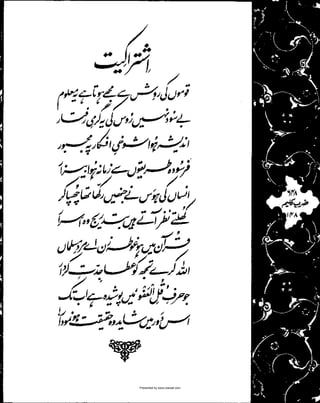 اشتراکیت
قوموں کی روش سے مجھے ہوتا ہے یہ معلوم
بے سود نہیں روس کی یہ گرمیِ رفتار
اندیشہ ہوا شوخیِ افکار پہ مجبور
فرسودہ طریقوں سے زمانہ ہوا بیزار
انساں کی ہوس نے جنھیں رکھا تھا چھپا کر
کھلتے نظر آتے ہیں بتدریج وہ اسرار
قرآن میں ہو غوطہ زن اے مردِ مسلماں
اللہ کرے تجھ کو عطا جدتِ کردار
جو حرفِ قل العفو میں پوشیدہ ہے اب تک
اس دور میں شاید وہ حقیقت ہو نمودار
ضربِ کلیم
Presented by www.iqbalcyberlibrary.net